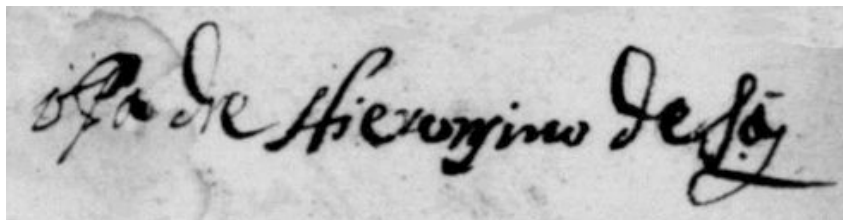 o Padre Hieronymo de Sá